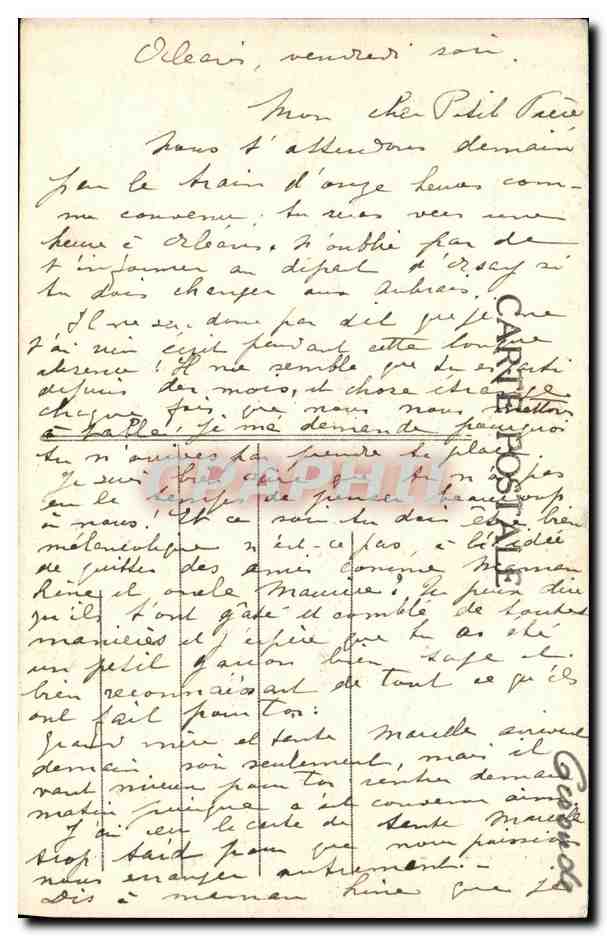 Orléans, vendredi soir.
Mon cher Petit Frère
Nous t'attendons demain
par le train d'onze heures com-
me convenu. tu seras vers une
heure à Orléans. N'oublie pas de
t'informer au départ d'Orsay si
tu dois changer aux Aubrais.
Il ne sera donc pas dit que je ne
t'ai rien écrit pendant cette longue
absence! Il me semble que tu es parti
depuis des mois, et chose étrange
chaque fois que nous nous mettons
à table, je me demande pourquoi
tu n'arrives pas prendre ta place.
Je suis bien sûre que tu n'as pas
eu le temps de penser beaucoup
à nous! Et ce soir tu dois être bien
mélancolique n'est-ce pas, à l'idée
de quitter des amis comme Maman
Reine et oncle Maurice? Tu peux dire
qu'ils t'ont gâté et comblé de toutes
manières et j'espère que tu as été
un petit garçon bien sage et
bien reconnaissant de tout ce qu'ils
ont fait pour toi.
Grand mère et tante Marcelle arrivent
demain soir seulement, mais il
vaut mieux pour toi rentrer demain
matin puisque c'est convenu ainsi.
J'ai eu la carte de tante Marcelle
trop tard pour que nous puissions
nous arranger autrement.
Dis à maman Reine que je
CARTE POSTALE
GRAPHIK